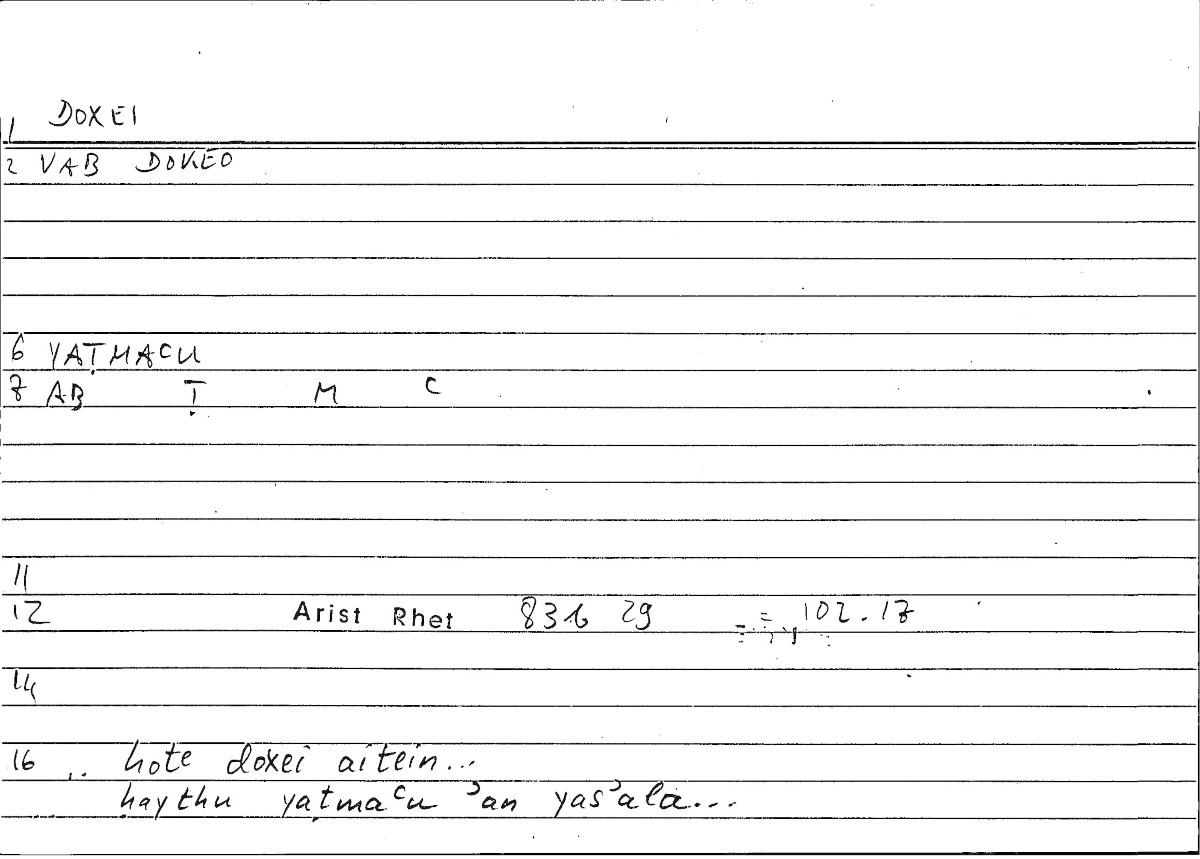 1 DOXEI
2 VAB DOKEO
6 YAṬMAʿU
7 AB Ṭ M ʿ
11
12 Arist Rhet 83b 29 = 102.17
14
16 .. hote doxei aitein...
ḥaythu yaṭmaʿu ʾan yasʾala...